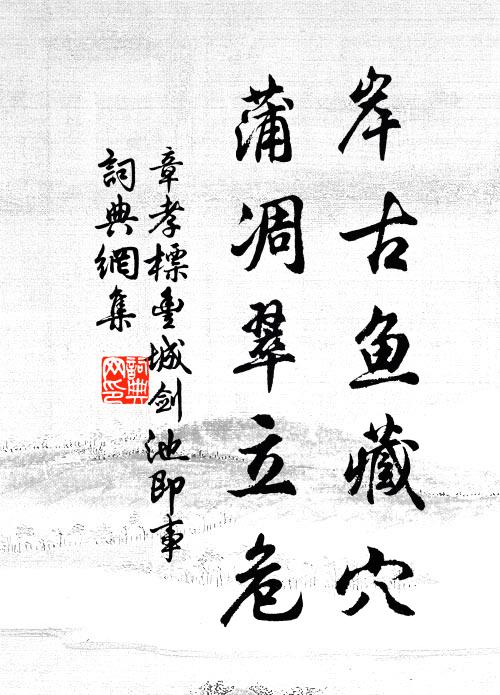 岸古鱼藏穴
蒲凋翠立危
章孝標豐城剑池即事
詞典網集
詞典
网印